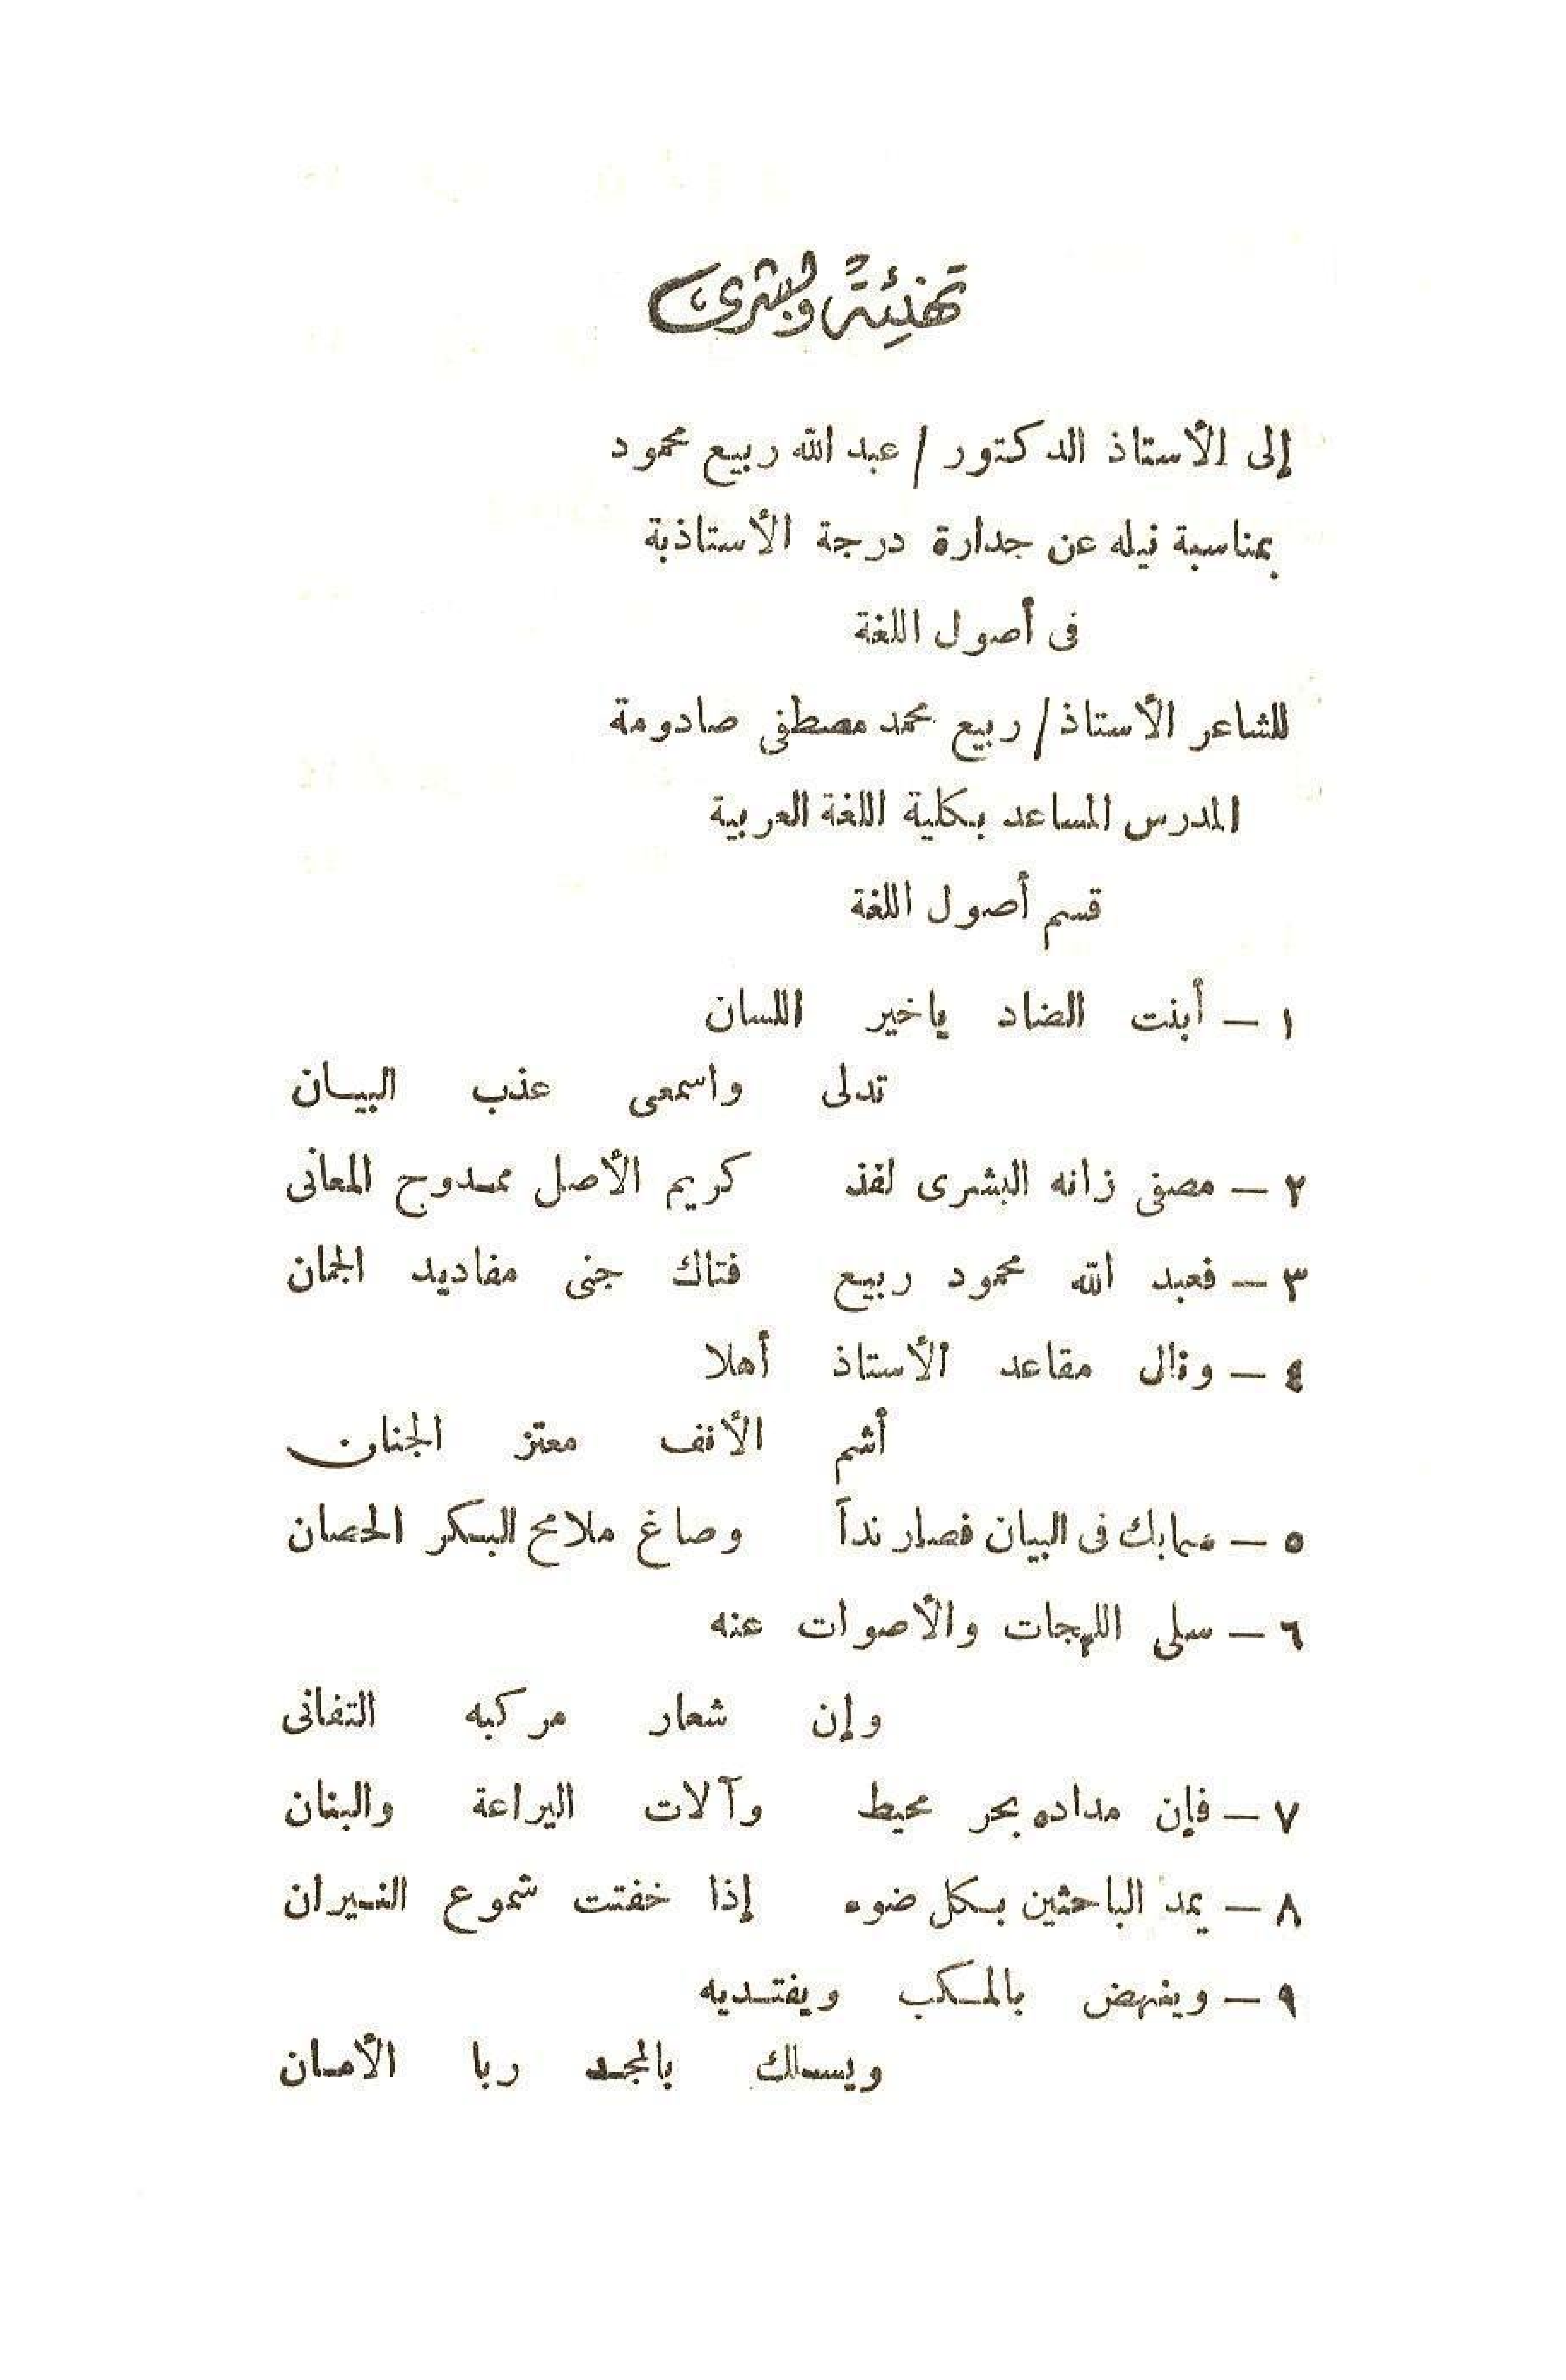 تهنئة وبشرى
إلى الأستاذ الدكتور / عبد الله ربيع محمود
بمناسبة نيله عن جدارة درجة الأستاذية
فى أصول اللغة
للشاعر الأستاذ / ربيع محمد مصطفى صادومة
المدرس المساعد بكلية اللغة العربية
قسم أصول اللغة
١ — أبنت الضاد ياخير اللسان
تدلى واسمعى عذب البيان
٢ — مصفى زانه البشرى لفذ كريم الأصل ممدوح المعانى
٣ — فعبد الله محمود ربيع فتاك جنى مفاديد الجمان
٤ — ونال مقاعد الأستاذ أهلا
أشم الأنف معتز الجنان
٥ — سمابك فى البيان فصار نداً وصاغ ملامح البكر الحصان
٦ — سلى اللهجات والأصوات عنه
وإن شعار مركبه التفانى
٧ — فإن مداده بحر محيط وآلات اليراعة والبنان
٨ — يمد الباحثين بكل ضوء إذا خفتت شموع النيران
٩ — وينهض بالمكب ويفتديه
ويسلك بالمجد ربا الأمان